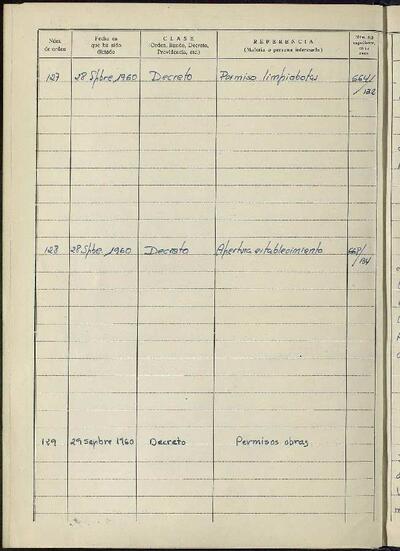 Núm. de orden
Fecha en que ha sido dictado
CLASE
(Orden, Bando, Decreto, Providencia, etc.)
REFERENCIA
(Materia o persona interesada)
127 28 Spbre, 1960 Decreto Permiso limpiabotas 664/
/132
128 28 Spbre, 1960 Decreto Apertura establecimiento
/134
129 29 Sepbre 1960 Decreto Permisos obras